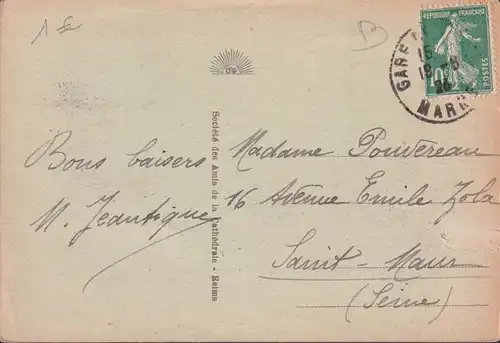 1 €
B
RÉPUBLIQUE FRANÇAISE
10c
POSTES
GARE
15
18-8
MARNE
Société des Amis de la Cathédrale - Reims
Bons baisers
M. Jeantique
Madame Pouvereau
16 Avenue Emile Zola
Saint-Maur
(Seine)